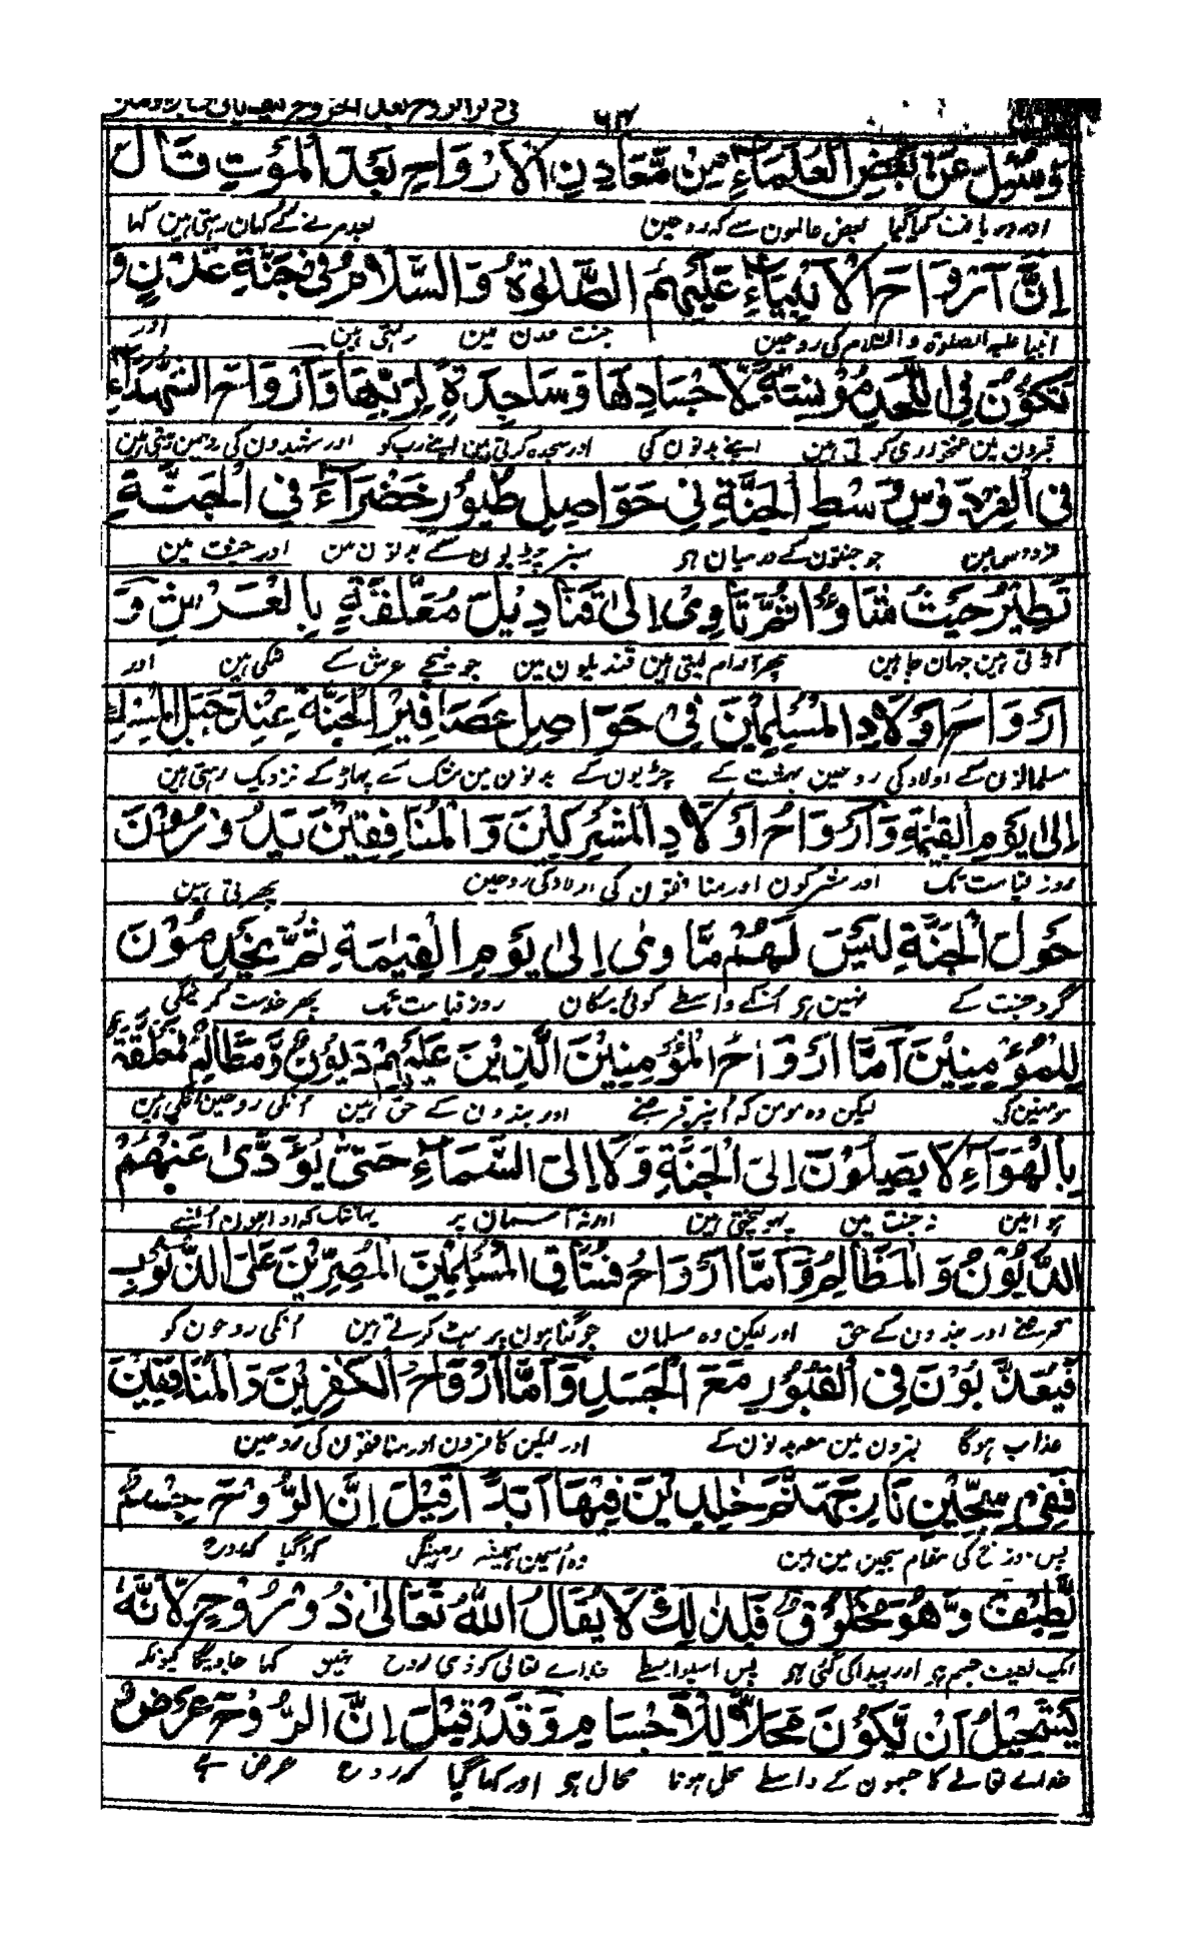 ۶۴
وَسُئِلَ عَنْ بَعْضِ الْعُلَمَاءِ مِنْ مَّعَادِنِ الْاَرْوَاحِ بَعْدَ الْمَوْتِ قَالَ
اور دریافت کیا گیا بعض عالمون سے کہ روحین بعد مرنے کے کہان رہتی ہین کہا
اِنَّ اَرْوَاحَ الْاَنْبِيَاءِ عَلَيْهِمُ الصَّلٰوةُ وَالسَّلَامُ فِىْ جَنَّةِ عَدْنٍ وَ
انبیا علیہ الصلوۃ والسلام کی روحین جنت عدن مین رہتی ہین اور
تَكُوْنُ فِى اللَّحْدِ مُؤْنِسَةً لِّاَجْسَادِهَا وَسَاجِدَةً لِرَبِّهَا وَاَرْوَاحُ الشُّهَدَاءِ
قبرون مین غمخواری کرتی ہین اپنے بدنون کی اور سجدہ کرتی ہین اپنے رب کو اور شہیدون کی روحین رہتی ہین
فِى الْفِرْدَوْسِ وَسْطِ الْجَنَّةِ فِىْ حَوَاصِلِ طُيُوْرٍ خَضْرَآءَ فِى الْجَنَّةِ
فردوس مین جو جنتون کے درمیان ہی سبز چڑیون کے بدنون مین اور جنت مین
تَطِيْرُ حَيْثُ شَاؤُا ثُمَّ تَاْوِىْ اِلٰى قَنَادِيْلَ مُعَلَّقَةٍ بِالْعَرْشِ وَ
اڑتی ہین جہان چاہین پھر آرام لیتی ہین قندیلون مین جو نیچے عرش کے لٹکی ہین اور
اَرْوَاحُ اَوْلَادِ الْمُسْلِمِيْنَ فِىْ حَوَاصِلِ عَصَافِيْرِ الْجَنَّةِ عِنْدَ جَبَلِ الْمِسْكِ
مسلمانون کے اولاد کی روحین بہشت کے چڑیون کے بدنون مین مشک کے پہاڑ کے نزدیک رہتی ہین
اِلٰى يَوْمِ الْقِيٰمَةِ وَاَرْوَاحُ اَوْلَادِ الْمُشْرِكِيْنَ وَالْمُنَافِقِيْنَ يَدُوْرُوْنَ
روز قیامت تک اور مشرکون اور منافقون کی اولاد کی روحین پھرتی ہین
حَوْلَ الْجَنَّةِ لَيْسَ لَهُمْ مَّاْوٰى اِلٰى يَوْمِ الْقِيٰمَةِ ثُمَّ يَخْدِمُوْنَ
گرد جنت کے نہین ہی اُنکے واسطے کوئی مکان روز قیامت تک پھر خدمت کرینگی
لِلْمُؤْمِنِيْنَ اَمَّا اَرْوَاحُ الْمُؤْمِنِيْنَ الَّذِيْنَ عَلَيْهِمْ دُيُوْنٌ وَّمَظَالِمُ مُعَلَّقَةٌ
مومنین کی لیکن وہ مومن کہ اُنپر قرضے اور بندون کے حق ہین اُنکی روحین لٹکی ہین
بِالْهَوَاءِ لَا يَصِلُوْنَ اِلَى الْجَنَّةِ وَلَا اِلَى السَّمَاءِ حَتّٰى يُؤَدّٰى عَنْهُمُ
ہوا مین نہ جنت مین پہونچتی ہین اور نہ آسمان پر یہانتک کہ ادا ہون اُنسے
الدُّيُوْنُ وَالْمَظَالِمُ وَاَمَّا اَرْوَاحُ فُسَّاقِ الْمُسْلِمِيْنَ الْمُصِرِّيْنَ عَلَى الذُّنُوْبِ
قرضے اور بندون کے حق اور لیکن وہ مسلمان جو گناہون پر ہٹ کرتے ہین اُنکی روحون کو
فَيُعَذَّبُوْنَ فِى الْقُبُوْرِ مَعَ الْجَسَدِ وَاَمَّا اَرْوَاحُ الْكٰفِرِيْنَ وَالْمُنَافِقِيْنَ
عذاب ہوگا قبرون مین معہ بدنون کے اور لیکن کافرون اور منافقون کی روحین
فَفِىْ سِجِّيْنٍ نَارِ جَهَنَّمَ خٰلِدِيْنَ فِيْهَا اَبَدًا قِيْلَ اِنَّ الرُّوْحَ جِسْمٌ
پس دوزخ کی مقام سجین مین ہین وہ اُسمین ہمیشہ رہینگی کہا گیا کہ روح
لَطِيْفٌ وَّهُوَ مَخْلُوْقٌ فَلِذٰلِكَ لَا يُقَالُ اللّٰهُ تَعَالٰى ذُوْ رُوْحٍ لِاَنَّهٗ
ایک لطیف جسم ہی اور پیدا کی گئی ہی پس اسیواسطے خداے تعالی کو ذی روح نہین کہا جاویگا کیونکہ
يَسْتَحِيْلُ اَنْ يَّكُوْنَ مَحَلًّا لِلْاَجْسَامِ وَقَدْ قِيْلَ اِنَّ الرُّوْحَ عَرَضٌ
خداے تعالے کا جسمون کے واسطے محل ہونا محال ہی اور کہا گیا کہ روح عرض ہے